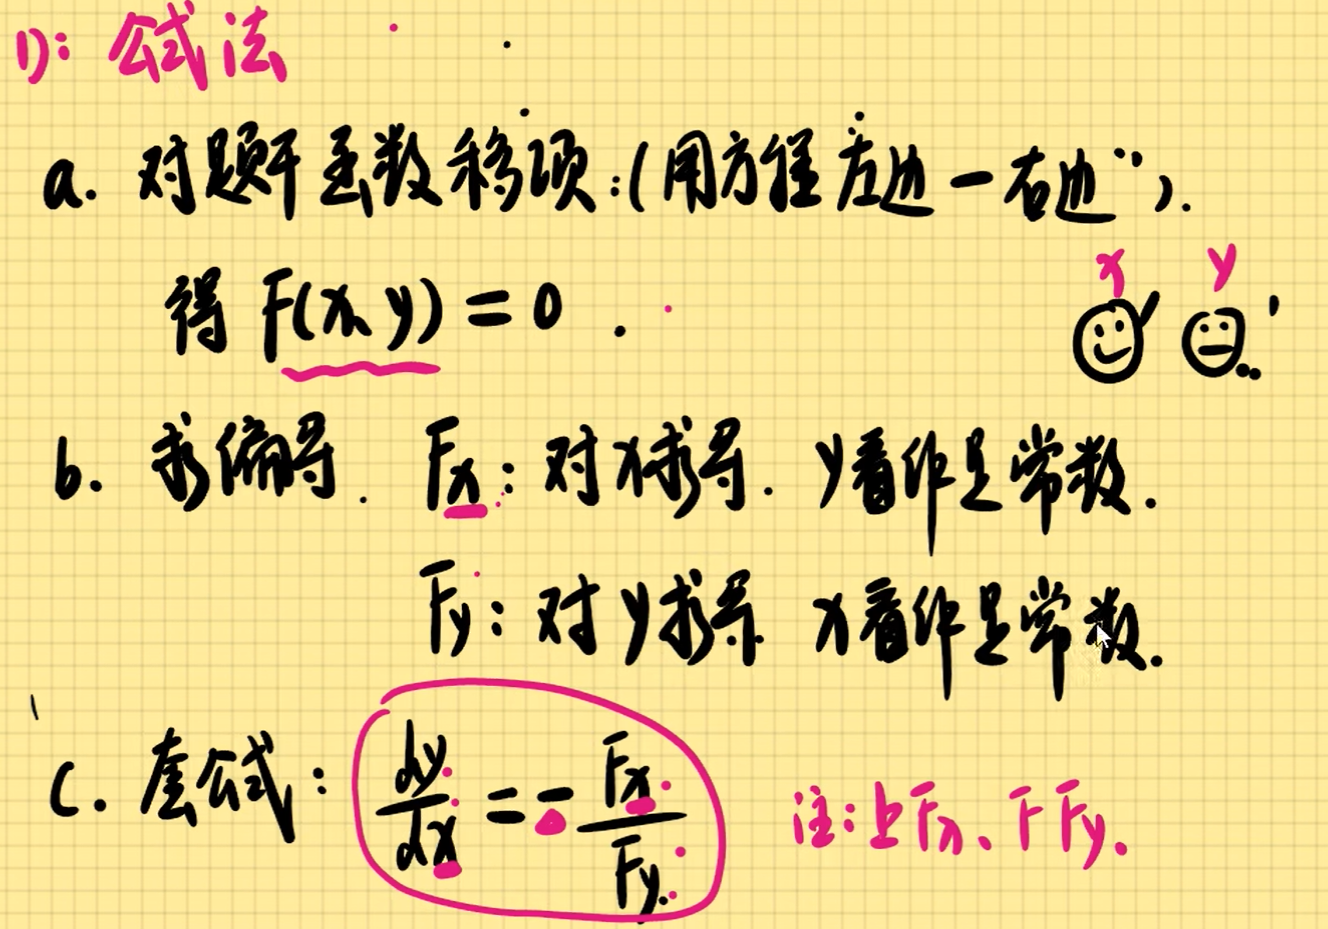 1): 公式法
a. 对题干函数移项:(用方程左边-右边").
得 F(x, y) = 0 .
x y
b. 求偏导. Fx: 对x求导. y看作是常数.
Fy: 对y求导. x看作是常数.
c. 套公式: dy/dx = - Fx/Fy 注:上Fx、下Fy.